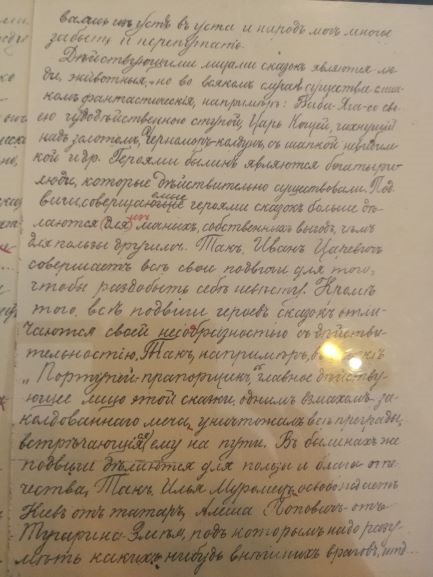 вались изъ устъ въ уста и народъ могъ многое
забыть и перепутать.
Дѣйствующими лицами сказокъ являются лю-
ди, животныя, но во всякомъ случаѣ существа слиш-
комъ фантастическія, напримѣръ: Баба-Яга со св
ею чудодѣйственной ступой, Царь Кощей, чахнущій
надъ золотомъ, Черноморъ-колдунъ, съ шапкой невидим-
кой и др. Героями былинъ являются богатыри
люди, которые дѣйствительно существовали. Под-
виги, совершаемые героями сказокъ больше дѣ-
лаются для личныхъ, собственныхъ выгодъ, чѣмъ
для пользы другихъ. Такъ, Иванъ Царевичъ
совершаетъ всѣ свои подвиги для того,
чтобы раздобыть себѣ невѣсту. Кромѣ
того, всѣ подвиги героевъ сказокъ отли-
чаются своей несообразностью съ дѣйстви-
тельностію. Такъ, напримѣръ,
„Портупей-прапорщикъ“ главное дѣйству-
ющее лицо этой сказки, однимъ взмахомъ за-
колдованнаго меча, уничтожалъ всѣ преграды,
встрѣчающіяся ему на пути. Въ былинахъ же
подвиги дѣлаются для пользы и блага оте-
чества. Такъ, Илья Муромецъ освобождаетъ
Кіевъ отъ татаръ, Алеша Поповичъ - отъ
Тугарина-Змѣя, подъ которымъ надо разу-
мѣть какихъ-нибудь внѣшнихъ враговъ, итд...